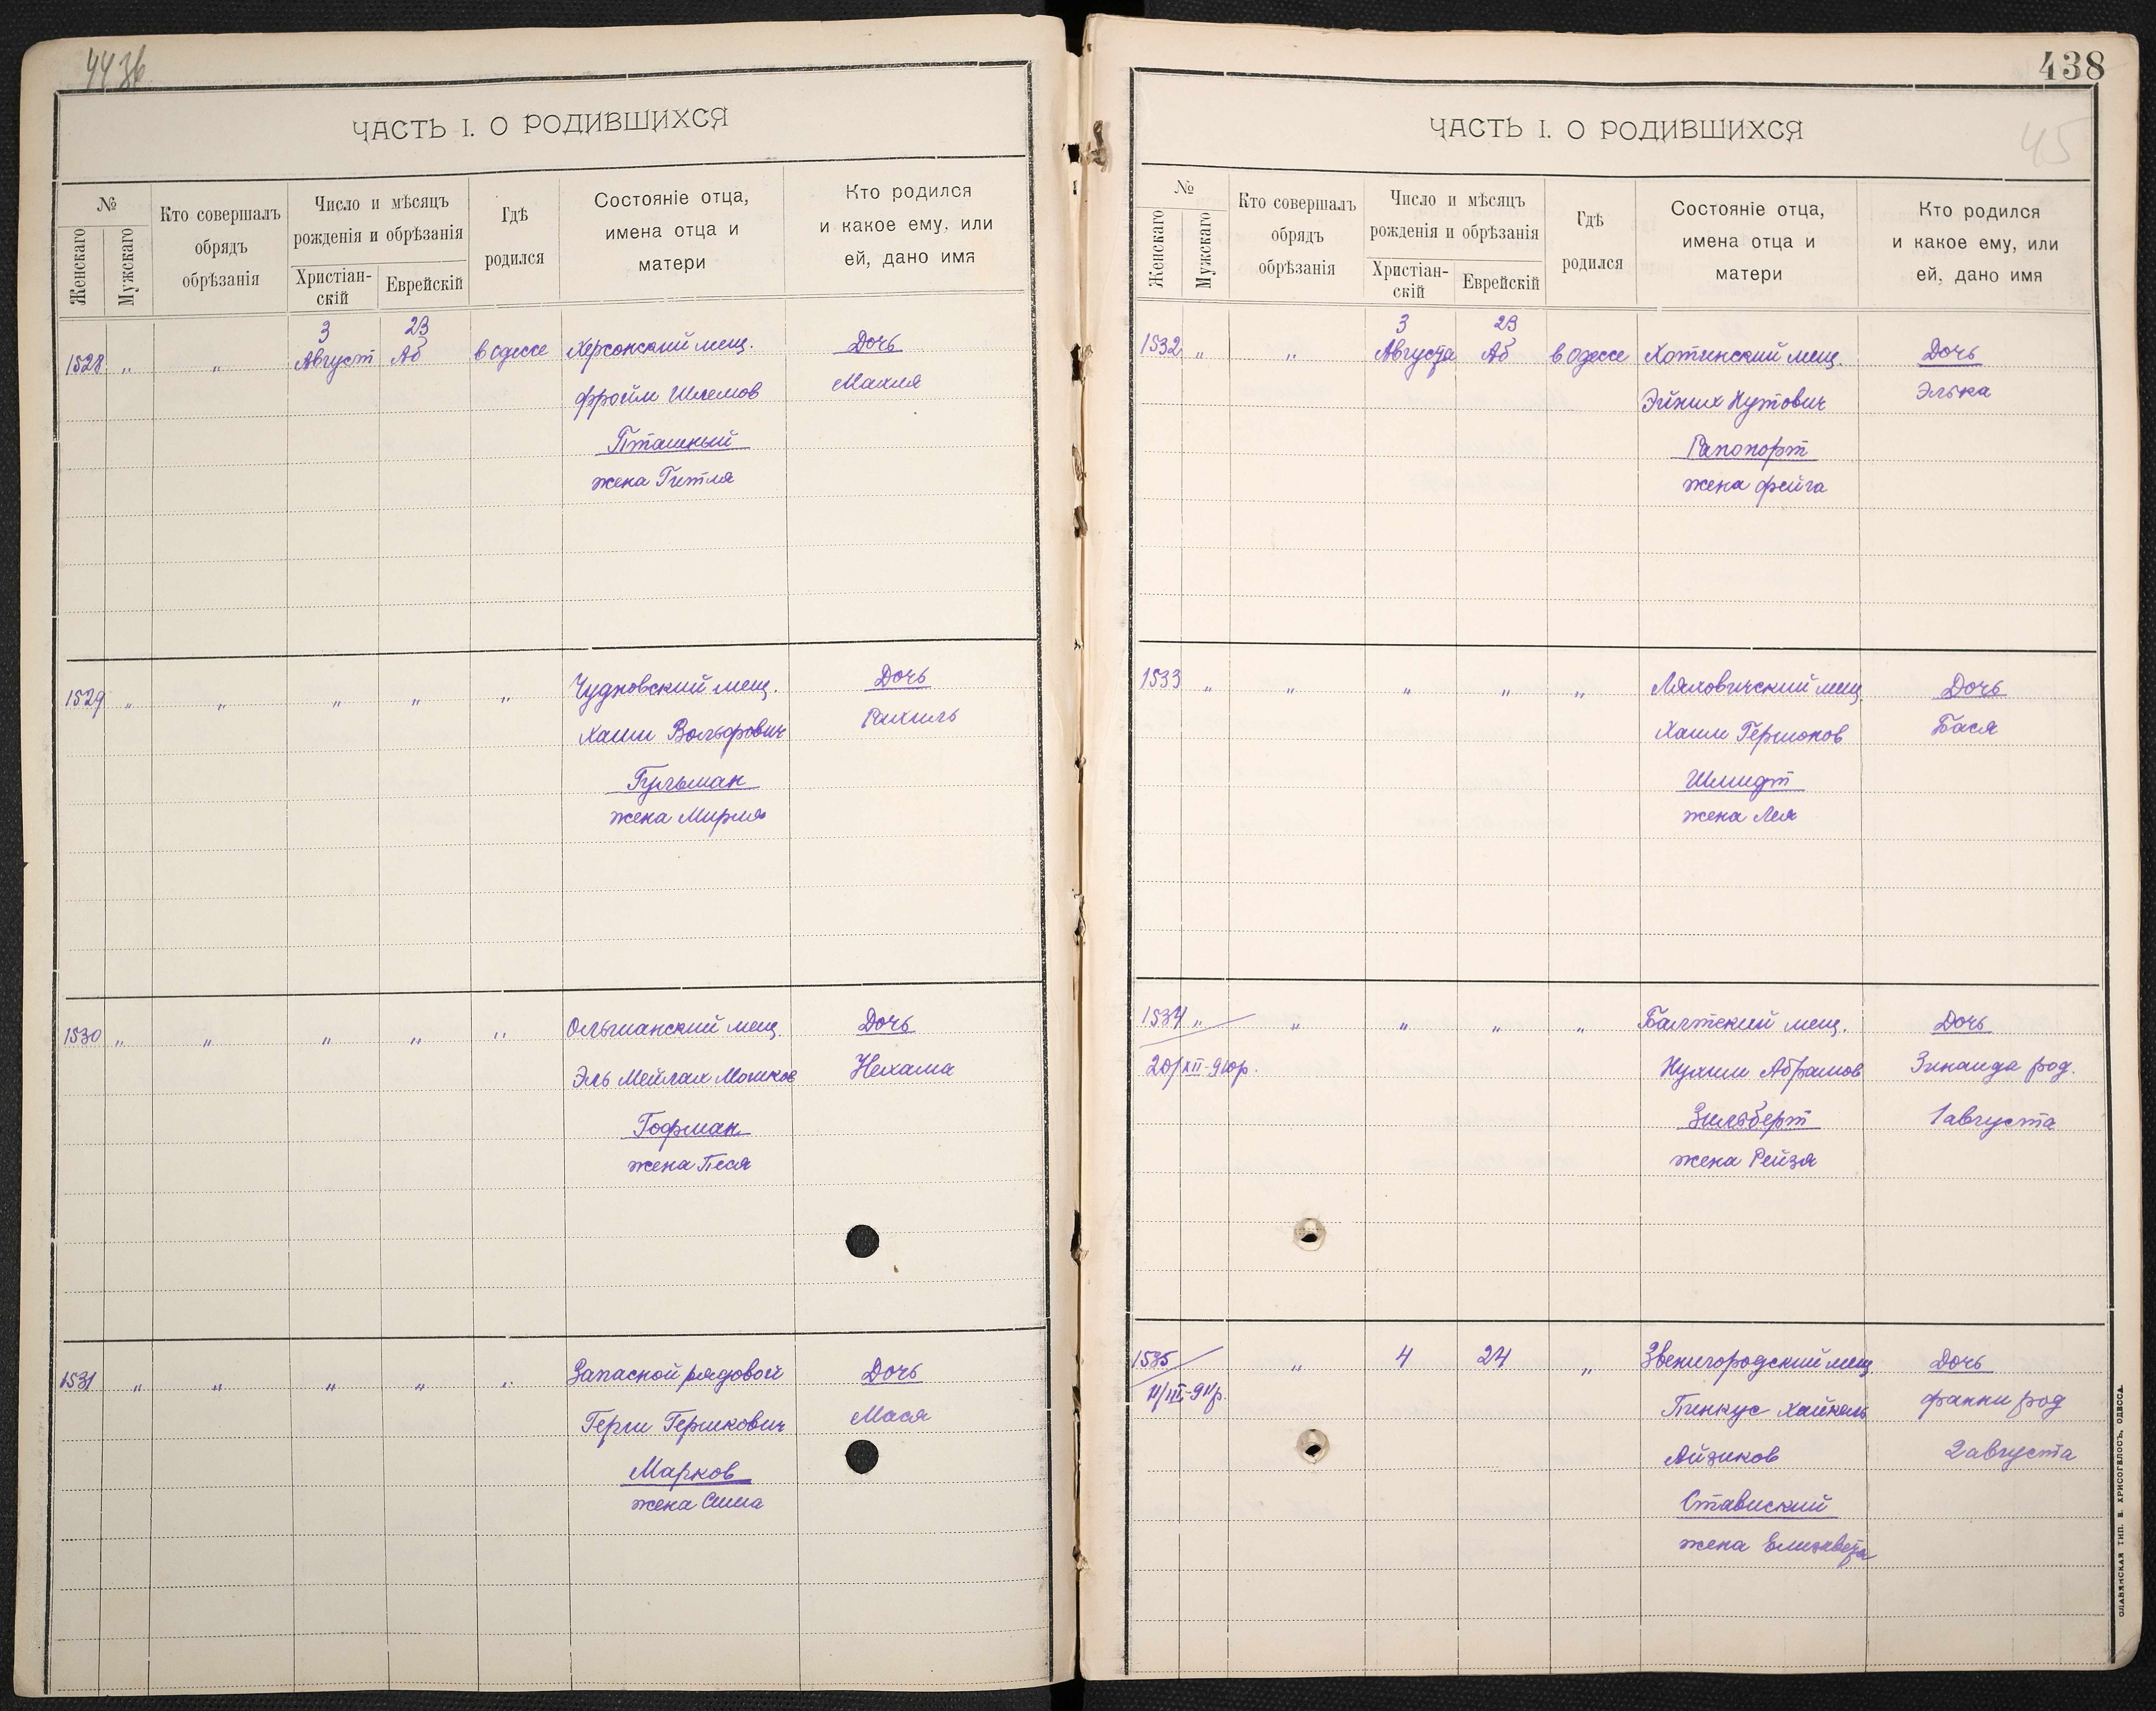 438
45
ЧАСТЬ I. О РОДИВШИХСЯ
№
Женскаго
Мужскаго
Кто совершалъ
обрядъ
обрѣзанія
Число и мѣсяцъ
рожденія и обрѣзанія
Христіан-
скій
Еврейскій
Гдѣ
родился
Состояніе отца,
имена отца и
матери
Кто родился
и какое ему, или
ей, дано имя
3 23
1528 " " Август Аб в Одессе Херсонский мещ. Дочь
Фройм Шлемов Махля
Пташный
жена Гитля
1529 " " " " " Чудновский мещ. Дочь
Хаим Вольфович Рахиль
Гульман
жена Мирля
1530 " " " " " Ольшанский мещ. Дочь
Эль Мейлах Мошков Нехама
Гофман
жена Песя
1531 " " " " " Запасной рядовой Дочь
Герш Гершкович Мася
Марков
жена Сима
ЧАСТЬ I. О РОДИВШИХСЯ
№
Женскаго
Мужскаго
Кто совершалъ
обрядъ
обрѣзанія
Число и мѣсяцъ
рожденія и обрѣзанія
Христіан-
скій
Еврейскій
Гдѣ
родился
Состояніе отца,
имена отца и
матери
Кто родился
и какое ему, или
ей, дано имя
3 23
1532 " " Августа Аб в Одессе Хотинский мещ. Дочь
Эйних Нутович Элька
Рапопорт
жена Фейга
1533 " " " " " Ляховичский мещ. Дочь
Хаим Гершонов Бася
Шмидт
жена Лея
1534 " " " " " Балтский мещ. Дочь
20/XII-910р. Нухим Абрамов Зинаида род.
Зильберт 1 августа
жена Рейзя
1535 " 4 24 " Звенигородский мещ. Дочь
11/III-911р. Пинкус Хайкель Фанни род
Айзиков 2 августа
Ставиский
жена Елизавета
СЛАВЯНСКАЯ ТИП. В. ХРИСОГЕЛОСЪ, ОДЕССА.